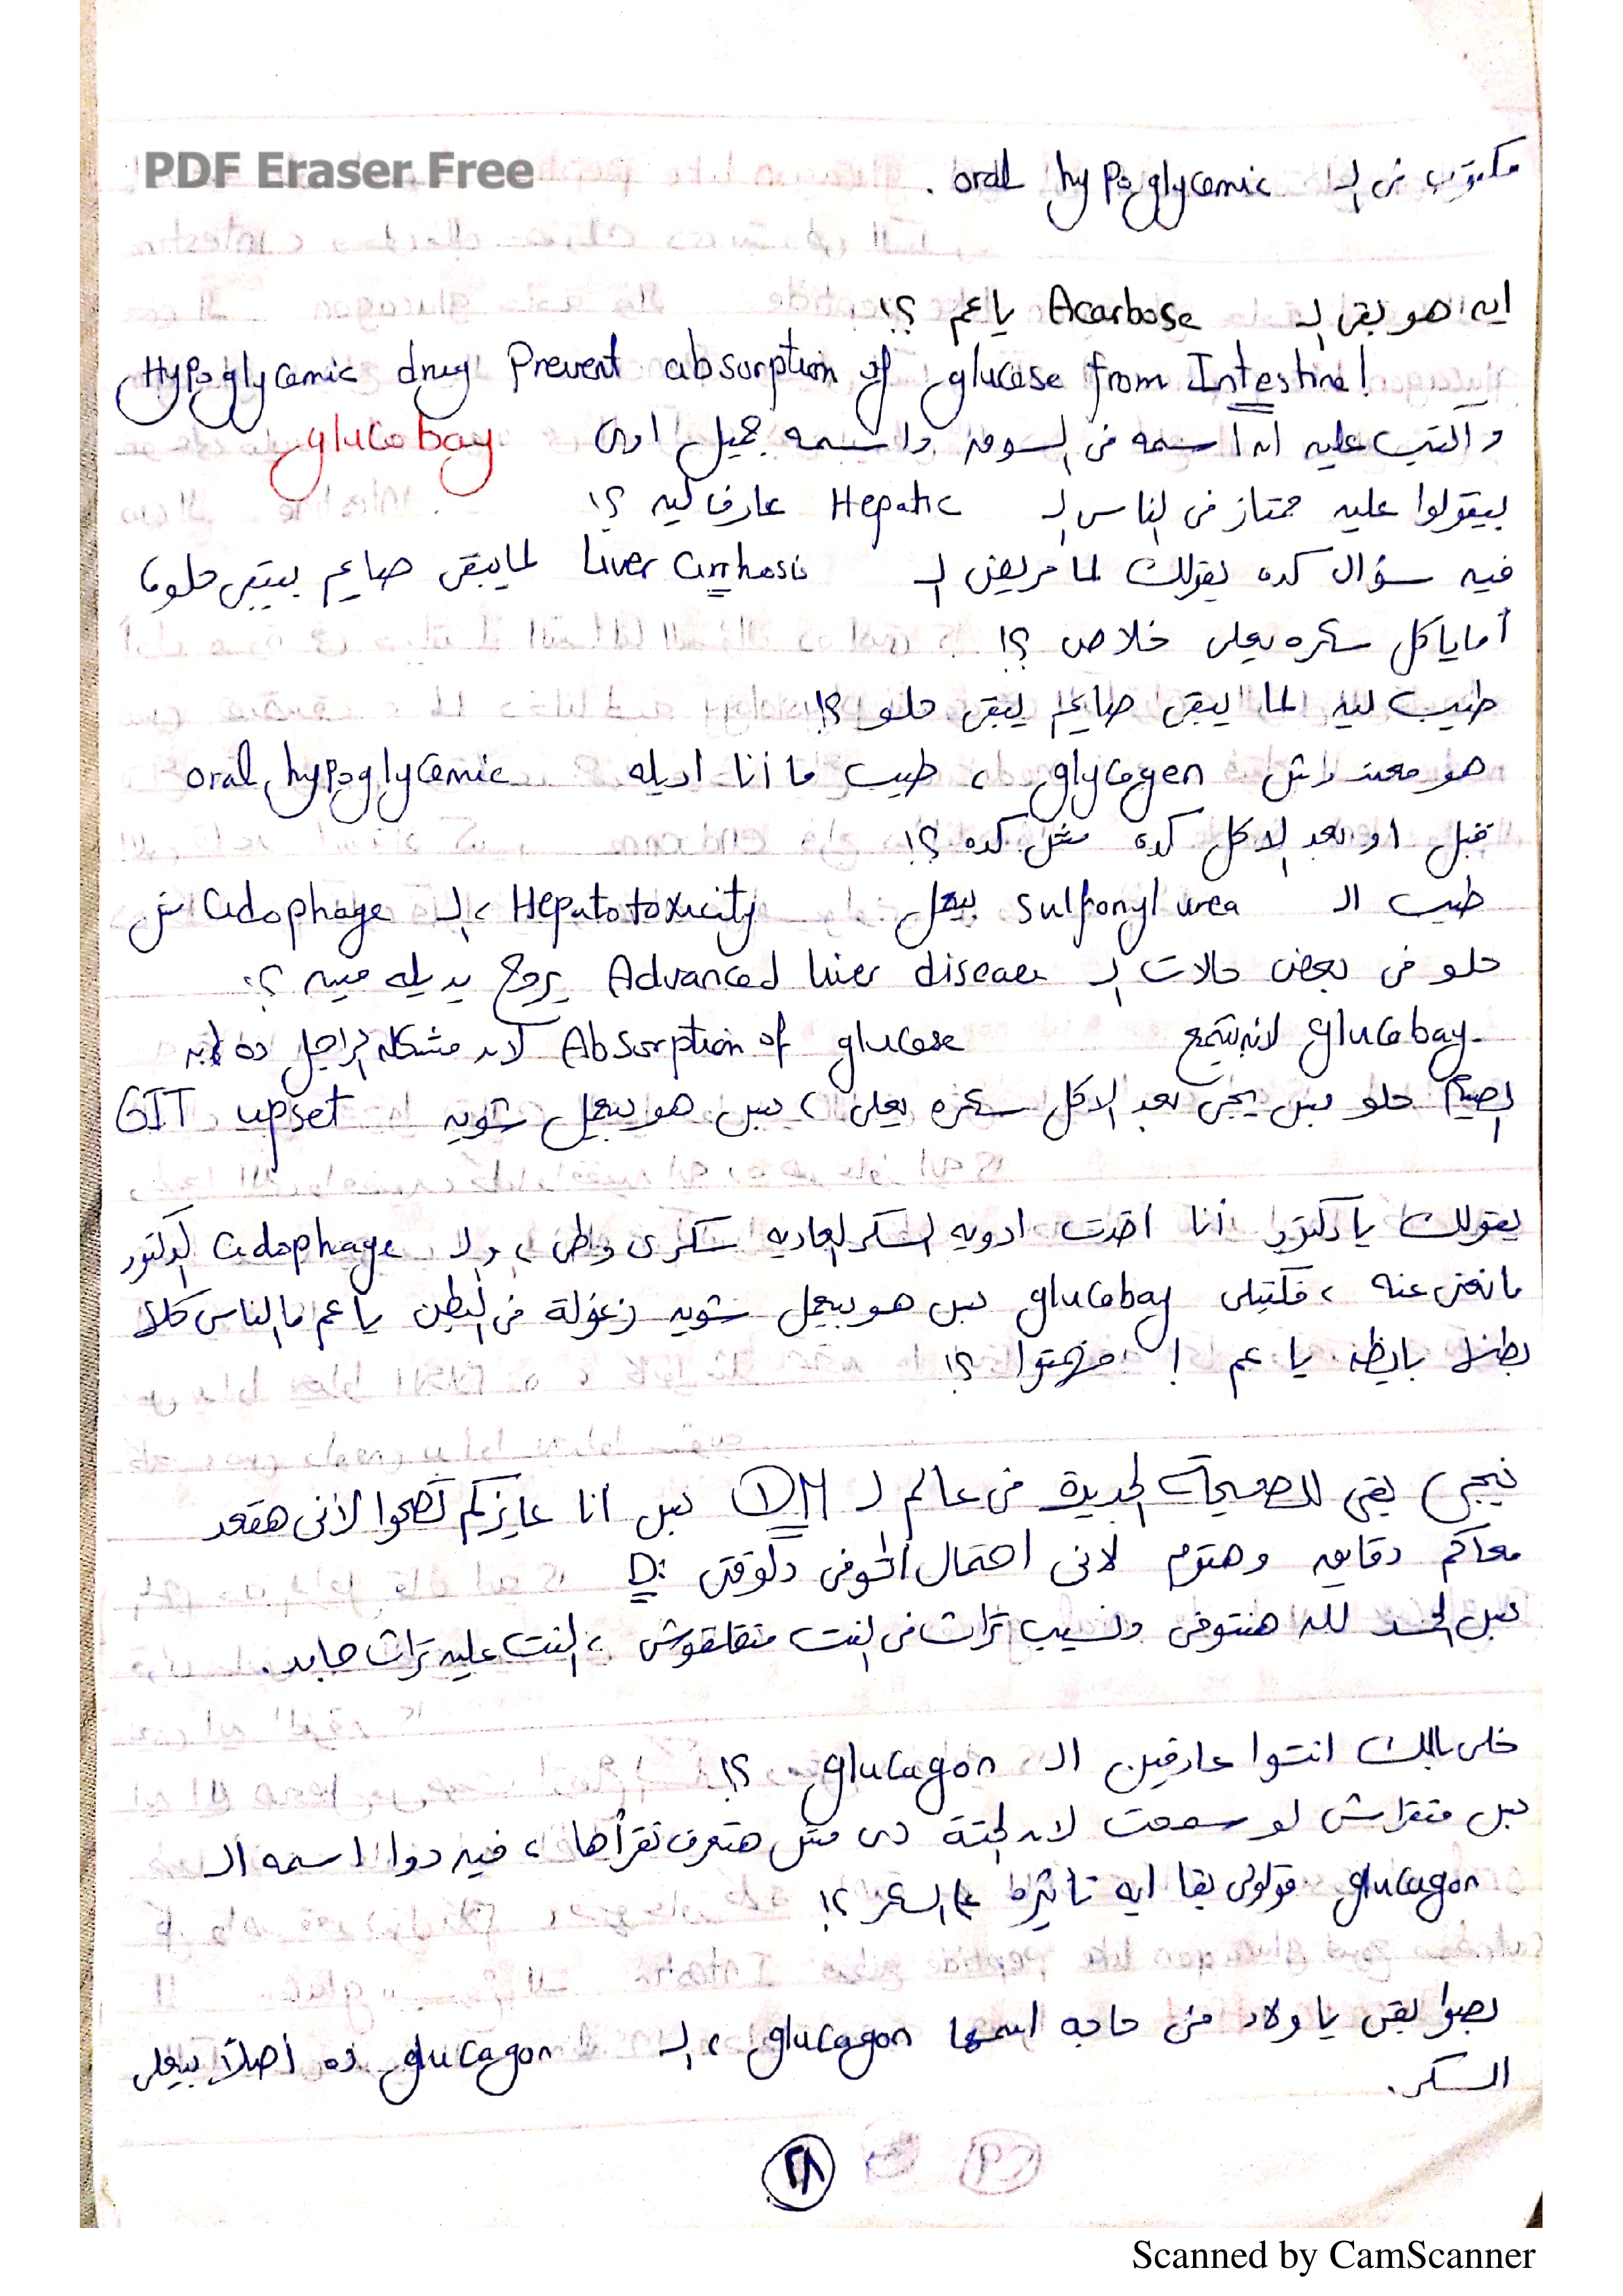 PDF Eraser Free
مكتوب فى الـ oral hypoglycemic .
ايه هو بقى الـ Acarbose يا عم ؟!
Hypoglycemic drug Prevent absorption of glucose from Intestine!
واكتب عليه ان اسمه فى السوق واسمه جميل اوى glucobay
بيقولوا عليه ممتاز فى الناس الـ Hepatic عارف ليه ؟!
فيه سؤال كده يقولك لما مريض الـ Liver cirrhosis لما يبقى صايم بيبقى حلو،
أما ياكل سكره يعلى خلاص ؟!
طيب ليه لما يبقى صايم يبقى حلو ؟!
هو معندوش glycogen ، طيب ما أنا اديله oral hypoglycemic
قبل او بعد الاكل كده مش كده ؟!
طيب الـ sulfonylurea بيعمل Hepatotoxicity ، الـ Cidophage مش
حلو فى بعض حالات الـ Advanced liver disease يروح يديله مييه ؟!
glucobay لانه بتمنع Absorption of glucose لان مشكله الراجل ده انه
الصيام حلو بس يجى بعد الاكل سكره يعلى ، بس هو بيعمل شويه GIT upset
يقولك يا دكتور أنا اخدت ادويه السكر العاديه سكرى وطى ، والـ Cidophage الدكتور
مانعنى عنه ، فكتبلى glucobay بس هو بيعمل شويه زغولة فى البطن يا عم ما الناس كلها
بطنها بايظه يا عم ! فهمتوا ؟!
نيجى بقى للصيحات الجديدة فى عالم الـ DM بس انا عايزكم تصحوا لأنى هقعد
معاكم دقايق وهتوم لانى احتمال اتوفى دلوقتى :D
بس الحمد لله هنتوفى ونسيب تراث فى النت متقلقوش ، النت عليه تراث جامد .
خلى بالك انتوا عارفين الـ glucagon ؟!
بس متقراش لو سمحت لان الحتة دى مش هتعرف تقرأها ، فيه دوا اسمه الـ
glucagon قولولى بقا ايه تأثيره ع السكر ؟!
بصوا بقى يا ولاد فى حاجه اسمها glucagon ، الـ glucagon ده اصلاً بيعلى
السكر .
٢٨
Scanned by CamScanner